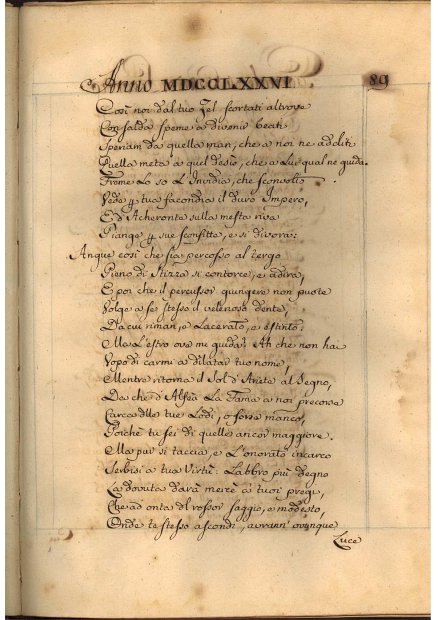 Anno MDCCLXXVI. 89
Così noi dal tuo Zel scortati altrove
Con salda speme a divenir beati
Speriam da quella man, che a noi ne additi
Quella meta a quel desìo, che a Lui qual ne guida.
Freme Lo so L'Invidia, che sconvolto
Vede p tua facondia il duro Impero,
E d'Acheronte sulla mesta riva
Piange p sue sconfitte, e si divora:
Angue così che sia percosso al tergo
Pieno di Stizza si contorce, e adira,
E poi che il percussor giungere non puote
Volge a se stesso il velenoso dente,
Da cui riman, e Lacerato, e estinto.
Ma L'estro ove mi guida? Ah che non hai
Vopo di carmi a dilatar tuo nome,
Mentre ritorna il Sol d'Ariete al Segno,
Da che d'Alfea La Fama a noi precorse
Carca delle tue Lodi, o forse manco,
Poichè tu sei di quelle ancor maggiore.
Ma pur si taccia, e L'onorato incarco
Serbisi a tua Virtù. Labbro più degno
La dovuta darà mercè a' tuoi pregi,
Che ad onta del rossor saggio, e modesto,
Onde te stesso ascondi, avrann' ovunque
Luce